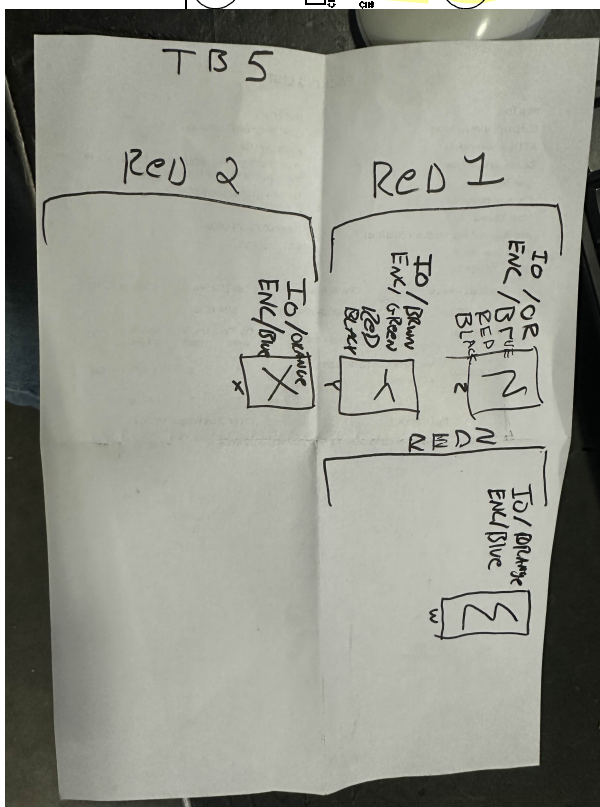 TB5
ReD 2
ReD 1
IO/ORANGE
ENC/Blue
X
X
IO/BRWN
ENC/GREEN
ReD
BLACK
Y
Y
IO/OR
ENC/BLUE
RED
BLACK
Z
Z
RED
IO/ORANGE
ENC/Blue
W
W